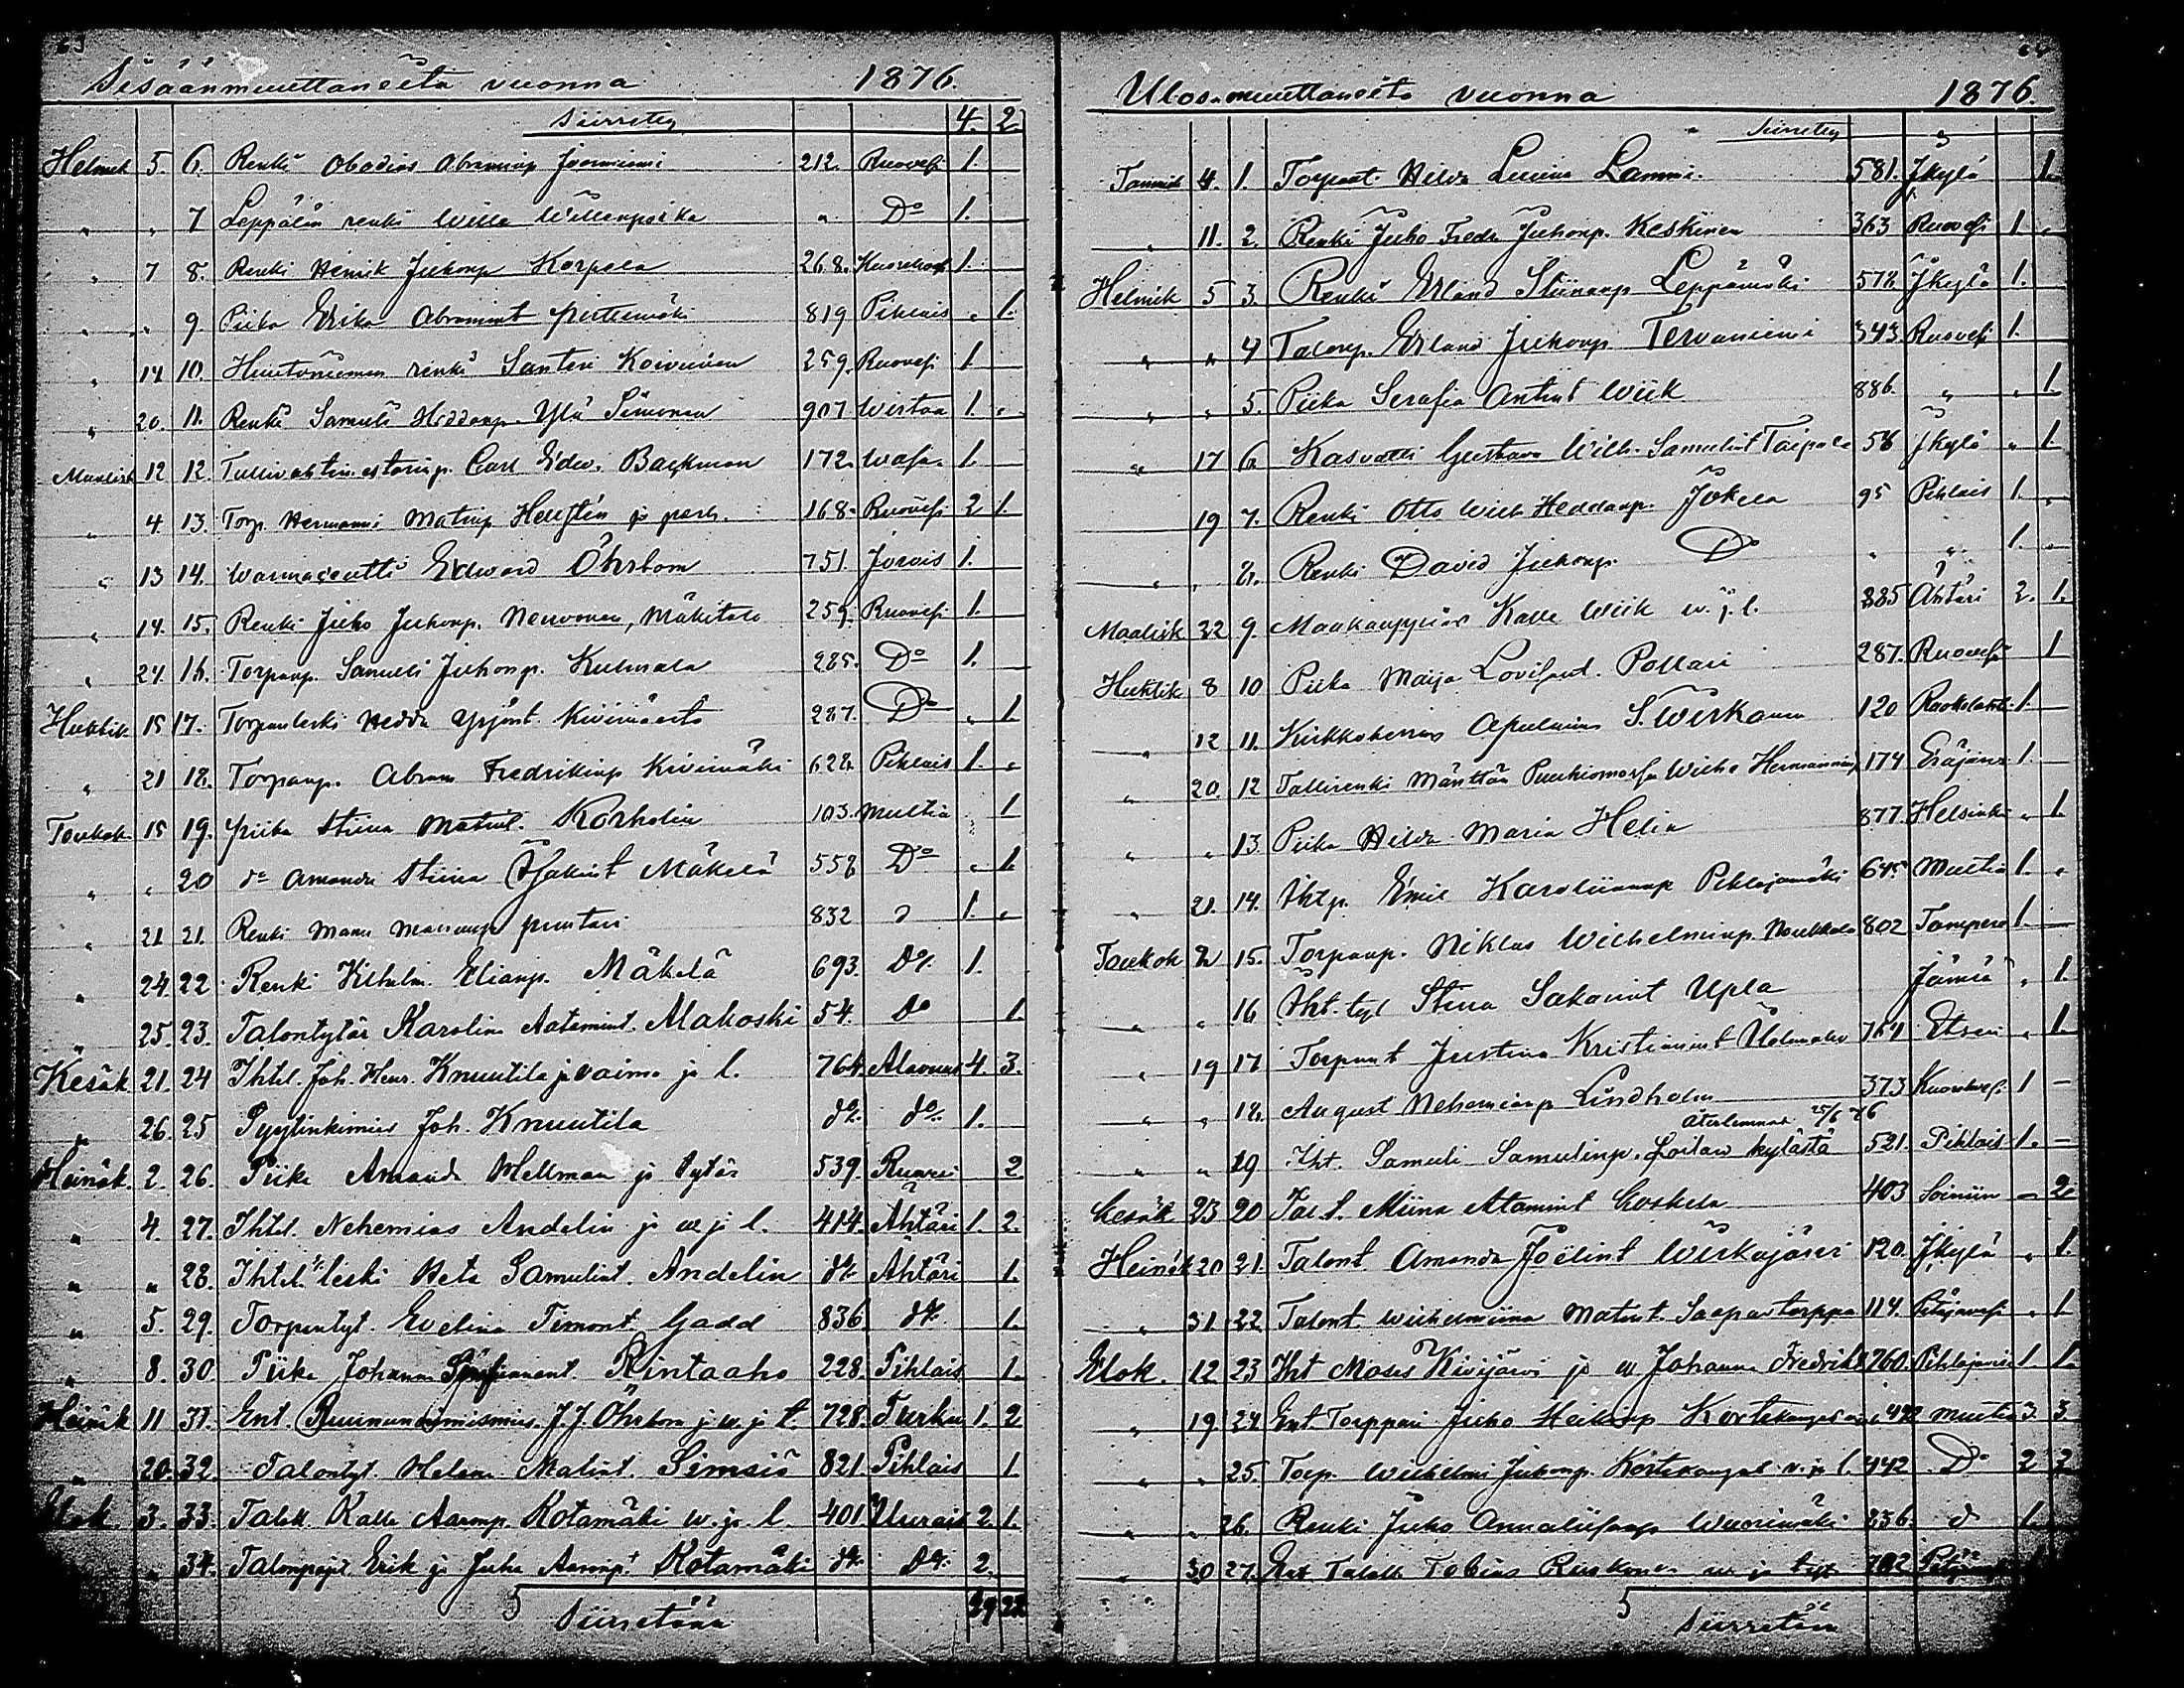 63
Sisäänmuuttaneita vuonna 1876.
Siirretty 4. 2.
Helmik 5. 6. Renki Obadias Abraminp 212. Ruovesi 1.
" " 7 Leppälän renki Wille Willenpoika " Do 1.
" 7 8. Renki Henrik Juhonp Korpela 268. 1.
" " 9. Piika Erika Abramint 819 Pihlais " 1.
" 14 10. renki Santeri Koivunen 259. Ruovesi 1
" 20. 11. Renki Samuli Heddanp. Ylä Simonen 907 Wirtaa 1. "
Maalisk 12 12. Carl Edw. Backman 172. Wasa. 1.
" 4 13. Torp. Hermanni Matinp ja perh. 168. Ruovesi 2 1
" 13 14. Edward Öhrbom 751. Jorois 1.
" 14. 15. Renki Juho Juhonp. Neuvonen, Mäkitalo 259. Ruovesi 1.
" 24 16. Torpanp. Samuli Juhonp. Kulmala 285. Do 1.
Huhtik 15 17. Torpanleski Hedda Yrjönt. 287. Do " 1.
" 21 18. Torpanp. Abram Fredrikinp Kivimäki 628. Pihlais 1. "
Toukok 15 19. Piika Stiina Matint. Korholin 103. Multia " 1
" " 20 do Amanda Stiina Isakint Mäkelä 558 Do " 1.
" 21 21. Renki Manu 832 1. "
" 24. 22 Renki Vilhelm. Elianp. Mäkelä 693. Do. 1.
" 25. 23. Talontytär Karolina Aatamint. Alakoski 54. Do 1.
Kesäk. 21. 24 Ihtl. Joh. Henr. Knuutila ja vaimo ja l. 764. Alavuus 4. 3.
" 26. 25 Joh. Knuutila do. do. 1.
Heinäk. 2. 26. Piika Amanda Hellman ja tytär 539. Ruovesi 2
" 4. 27. Ihtl. Nehemias Andelin ja w ja l. 414. Ähtäri 1. 2.
" " 28. Ihtl. leski Heta Samulint. Andelin do. Ähtäri 1.
" 5. 29. Torpantyt. Evelina Timont. Gadd 836. do. 1.
" 8. 30. Piika Johanna Rintaaho 228. Pihlais 1.
Heinäk 11 31. Ent. Ruununnimismies. J.J. Öhrbom ja w. ja l. 728. Turku 1. 2
" 20. 32. Talontyt. Helena Matint. Simsiö 821. Pihlais 1.
Elok. 3. 33. Talok Kalle Aaronp. Kotamäki w. ja l. 401. Uurais 2. 1.
" 34. Talonpojat Erik ja Juha Aaronp. Kotamäki do. do. 2.
Siirretään 29 22
Ulosmuuttaneita vuonna 1876.
Siirretty "
Tammik 4. 1. Torpant. Hilda Lammi. 581. Jkylä 1.
" 11. 2. Renki Juho Fredr Juhonp. Keskinen 363 Ruovesi 1 "
Helmik 5 3. Renki Erland Stiinanp Leppämäki 578 Jkylä 1.
" " 4 Talonp. Erland Juhonp. Tervaniemi 343. Ruovesi 1.
" " 5. Piika Serafia Antint Wiik 886. " " 1
" 17 6. Kasvatti Gustava Wilh. Samulint Taipale 58 Jkylä " 1.
19 7. Renki Otto Wilh Heddanp. Jokela 95 Pihlais 1. "
" " 8. Renki David Juhonp. Do " " 1. "
Maalisk 22 9. Maakauppias Kalle Wiik w. j. l. 885 Ähtäri 2. 1.
Huhtik 8 10 Piika Maija Lovisant. Pollari 287. Ruovesi 1
" 12 11. Kirkkoherran Apulainen S. Wirkanen 120 Ruokolahti 1.
" 20. 12 Tallirenki Mäntän Wilho Hermanninp 174 Eräjärvi 1.
" " 13. Piika Hilda Maria Helin 877. Helsinki " 1.
" 21. 14. Ihtp. Emil Karoliinanp Pihlajamäki 645 Multia 1. "
Toukok 2 15. Torpanp. Niklas Wilhelminp. Nuuttola 802 Tampere 1.
" " 16 Iht. tyt Stina Sakarint Upla Jämsä " 1.
" 19 17 Torpant Justina Kristianint 764 Etseri " 1.
" " 18. August Nehemianp Lindholm 373 Kuorehvesi 1 -
Återkommit 25/6 76
" " 19 Iht. Samuli Samulinp. kylästä 521. Pihlais 1. -
Kesäk 23 20 Tal t. Miina Atamint Koskela 403 Soinin - 2.
Heinäk 20 21. Talont Amanda Joelint Wirkajärvi 120. Jkylä " 1.
" 31. 22 Talont Wilhelmiina Matint. Saapastorppa 114. Petäjävesi " 1
Elok. 12. 23 Iht Moses Kivijärvi ja w Johanna Fredrik 760. Pihlajavesi 1. 1.
" 19. 24 Ent. Torppari Juho Heikinp Kortekangas 442 Multia 3. 3
" " 25. Torp. Wilhelmi Juhonp. Kortekangas v. ja l. 442 Do 2 2
" " 26. Renki Juho Annaliisanp Wuorimäki 236. do 1.
" 30 27. Ent Talok Tobias Ruskonen w ja tyt. 702
Siirretään